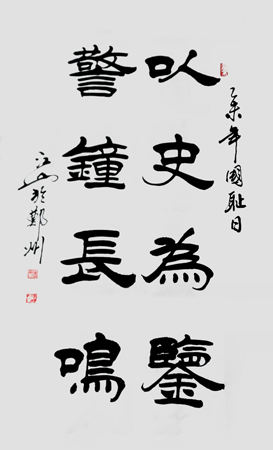 乙未年國耻日
以史為鑒
警鐘長鳴
江山於鄭州